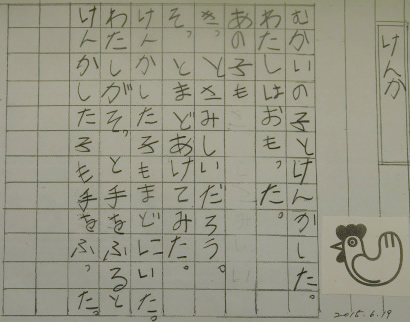 けんか
むかいの子とけんかした。
わたしはおもった。
あの子も
きっとさみしいだろう。
そっとまどあけてみた。
けんかした子もまどにいた。
わたしがそっと手をふると
けんかした子も手をふった。
2015.6.19